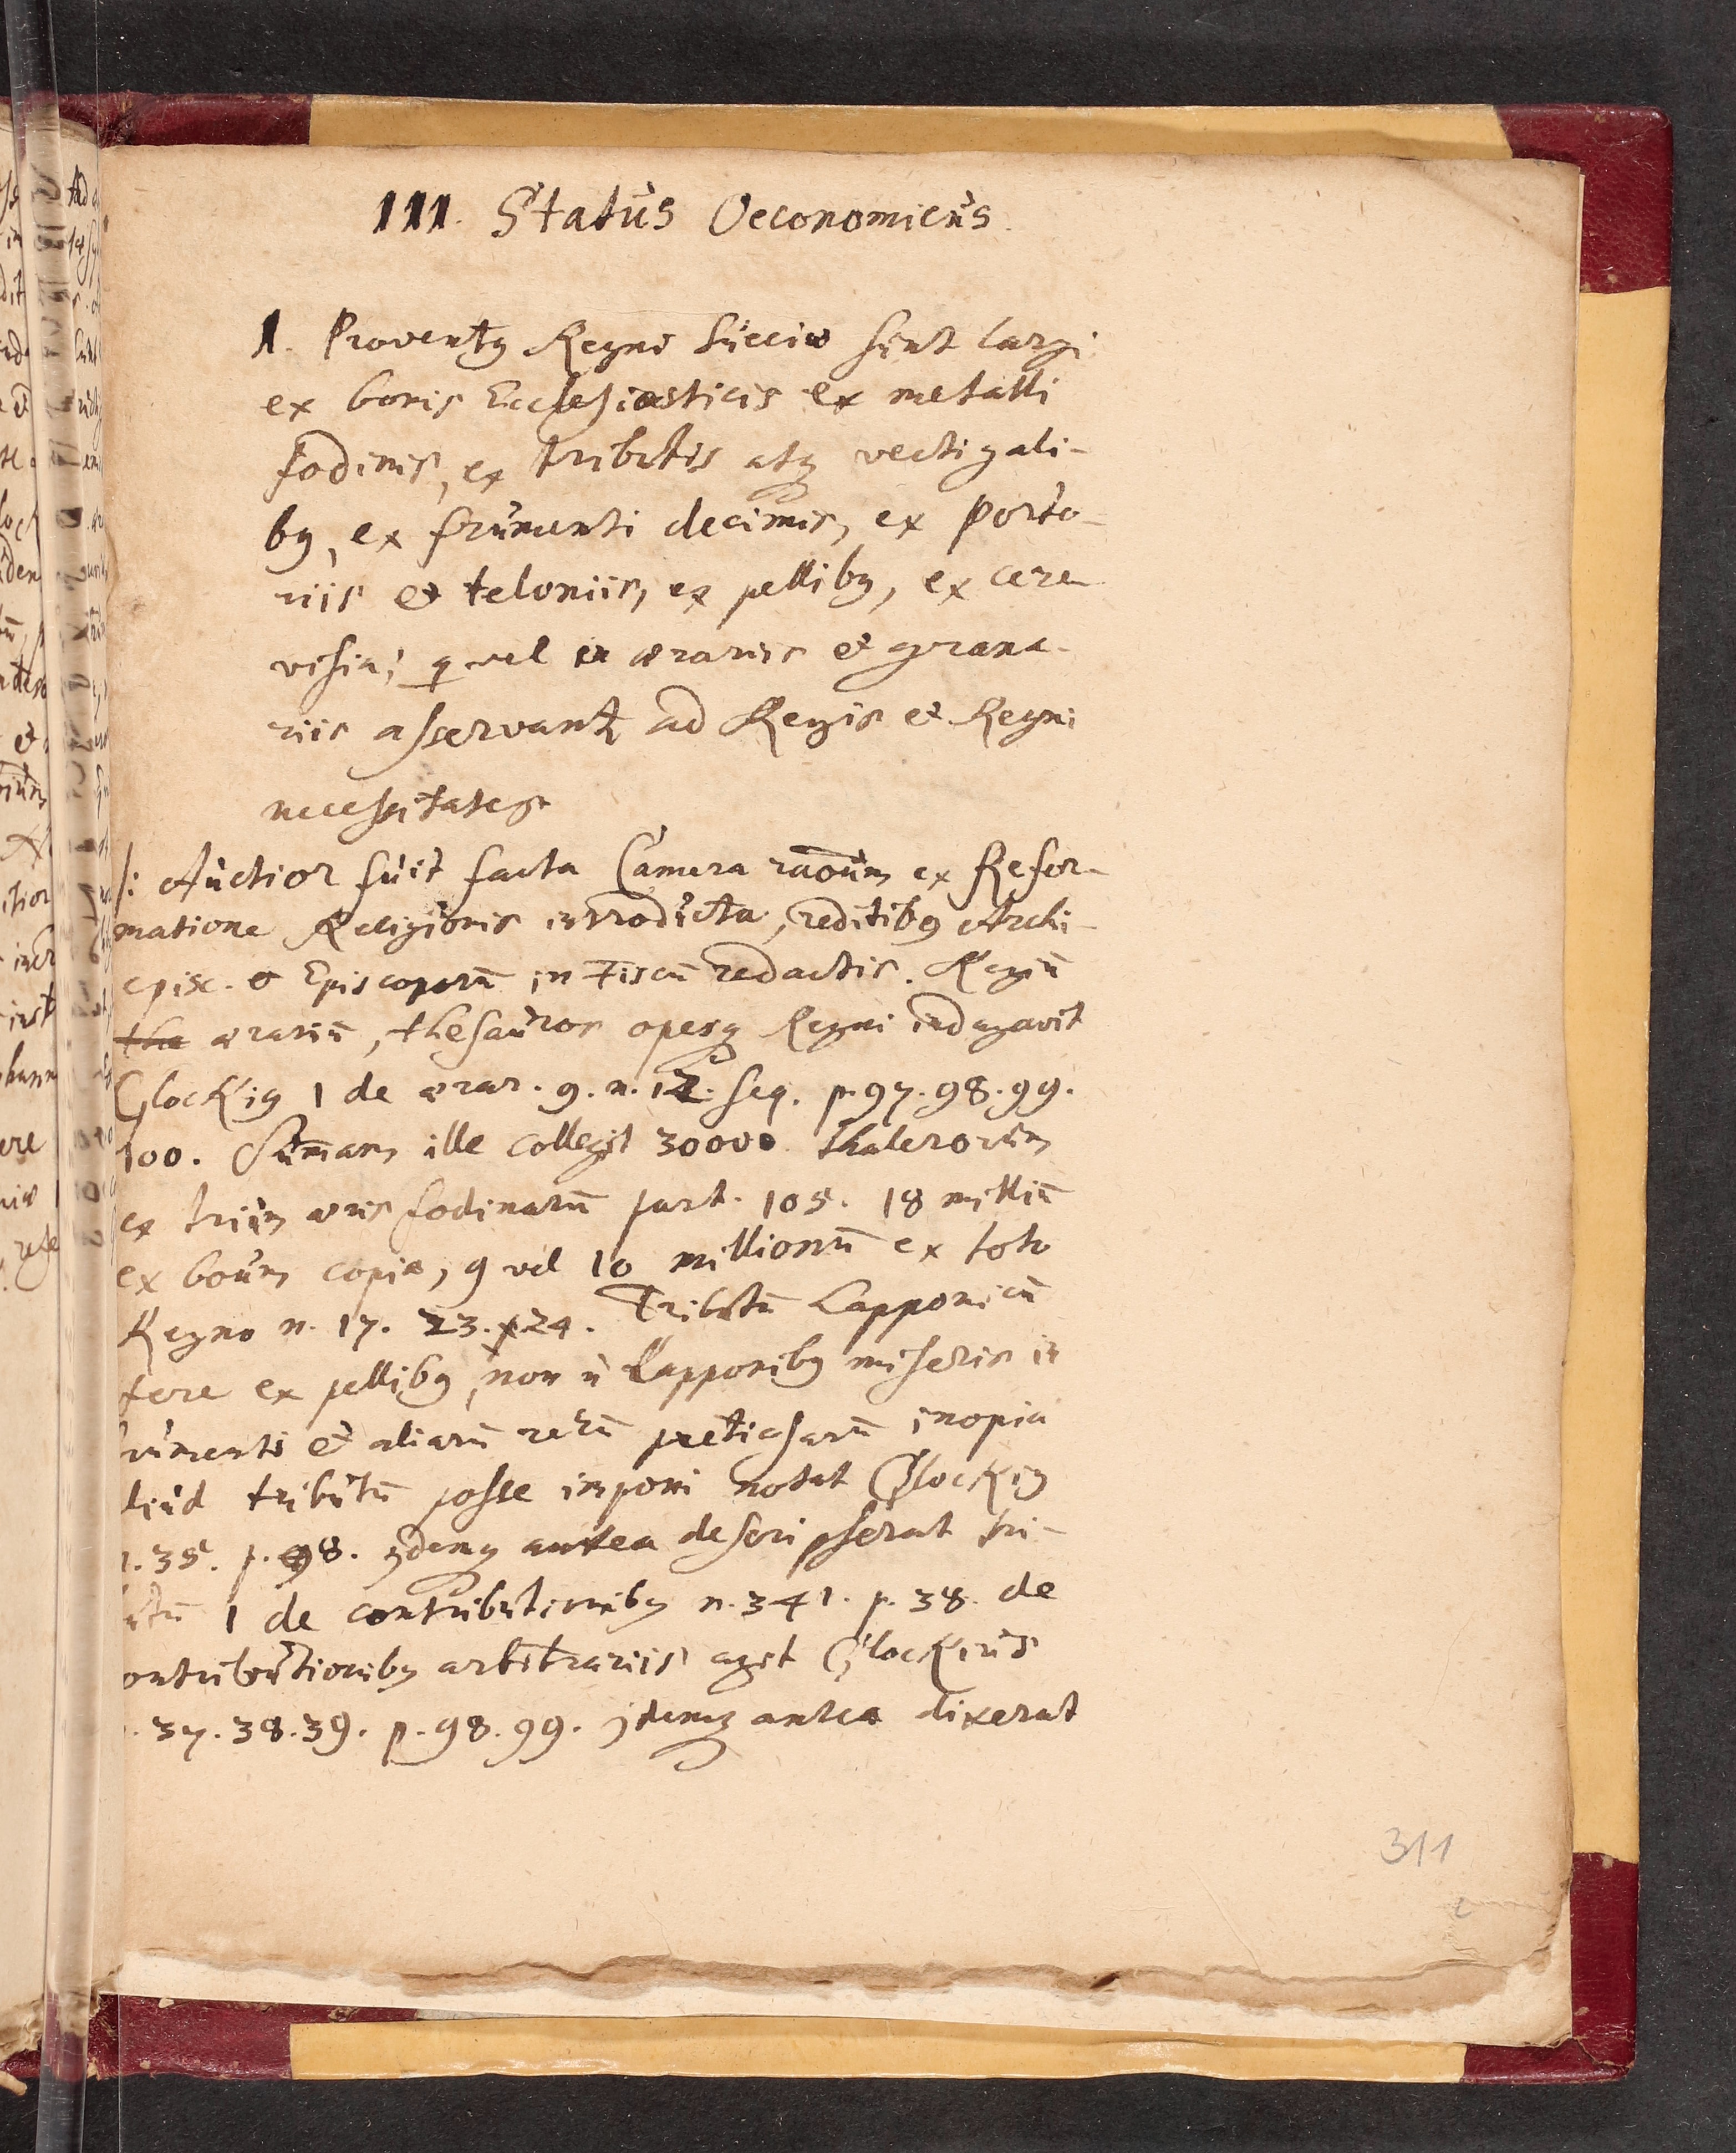 III. Status Oeconomicus.
1. Proventꝯ Regni Sueciæ sunt largi
ex bonis Ecclesiasticis ex metalli
fodinis, ex tributis atqꝫ vectigali-
bꝯ, ex frumenti decimis, ex porto-
riis et teloniis, ex pellibꝯ, ex cere
visia; q vel in ærariis et grana-
riis asservant ad Regis et Regni
necessitates
/: Auctior fuit facta Camera raoūm ex Refor-
matione Religionis introducta, reditibꝯ Archi-
episc. & Episcoporū in Fiscū redactis. Regiū
the ærariū, thesauros opesqꝫ Regni indagavit
Glockiꝯ 1 de ærar. 9. n. 12. seq. p. 97. 98. 99.
100. Sum̄am ille collegit 30000 thalerorum
ex trium æris fodinarū part. 105. 18 milliū
ex boum copia, 9 vel 10 millionū ex toto
Regno n. 17. 23. 24. Tributū Lapponicū
fere ex pellibꝯ, non n̄ Lapponibꝯ miseris in
rumenti et aliarū rerū pretiosarū inopia
liud tributū posse imponi notat Glockiꝯ
n. 35. p. 98. jdemqꝫ antea descripserat tri-
utū 1 de contributionibꝯ n. 341. p. 38. de
ontributionibꝯ arbitrariis agit Glockius
. 37. 38. 39. p. 98. 99. jdemqꝫ antea dixerat
311